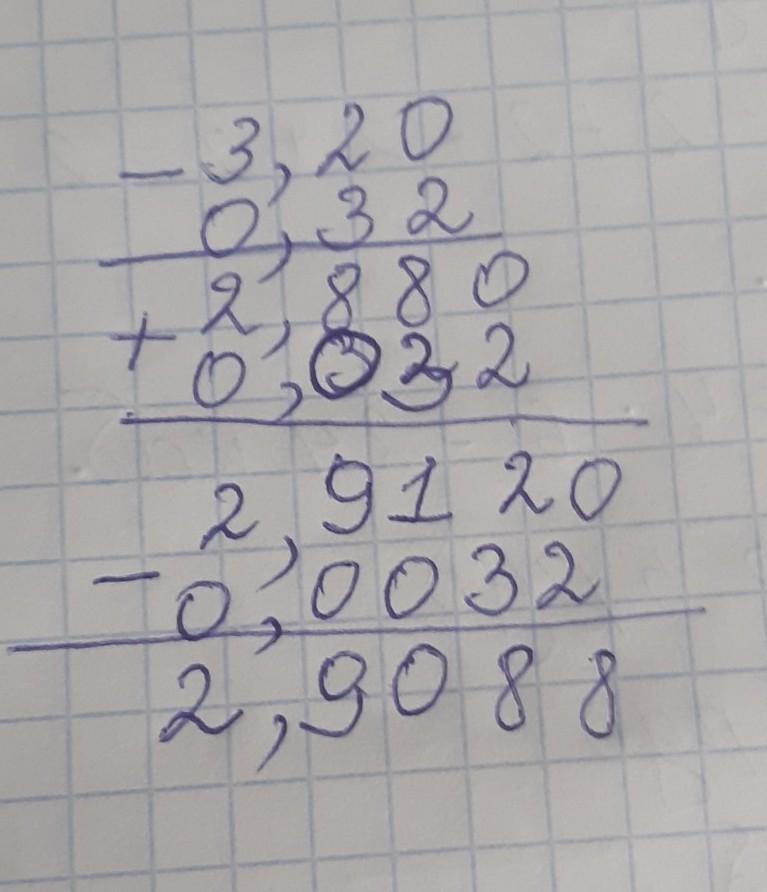 - 3,20
0,32
+ 2,880
0,032
2,9120
- 0,0032
2,9088